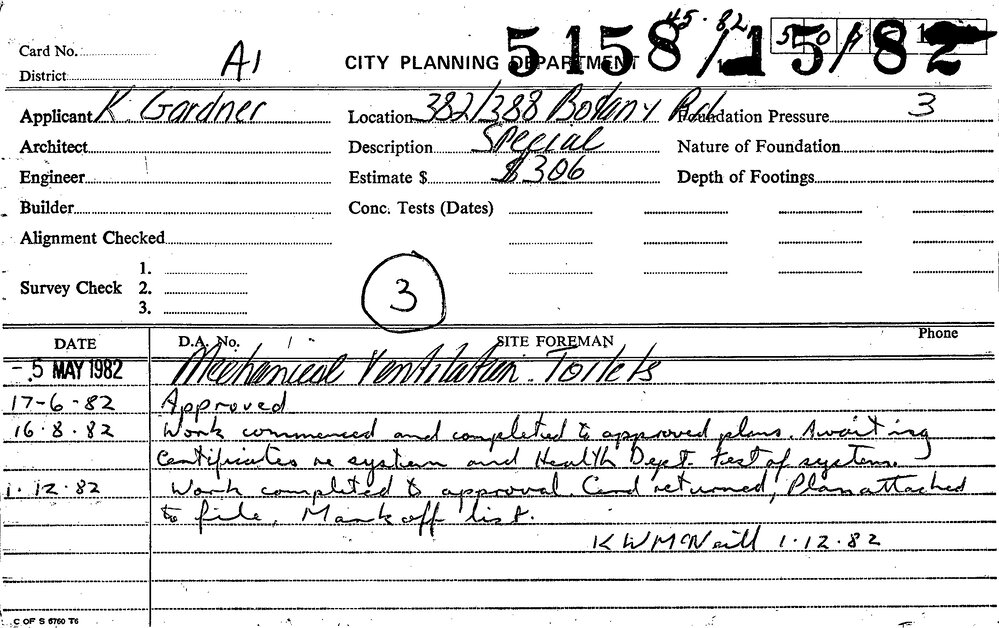 45.82
Card No.
A1
CITY PLANNING DEPARTMENT
5158/15/82
District
Applicant K. Gardner Location 382/388 Botany Rd Foundation Pressure 3
Architect Description Special Nature of Foundation
Engineer Estimate $ $306 Depth of Footings
Builder Conc. Tests (Dates)
Alignment Checked
1.
Survey Check 2.
3.
3
DATE D.A. No. SITE FOREMAN Phone
-5 MAY 1982 Mechanical Ventilation. Toilets
17-6-82 Approved
16.8.82 Work commenced and completed to approved plans. Awaiting
Certificates re system and Health Dept. test of system.
1.12.82 Work completed to approval. Card returned, Plan attached
to file, Mark off list.
K W McNeill 1.12.82
C OF S 6760 T6